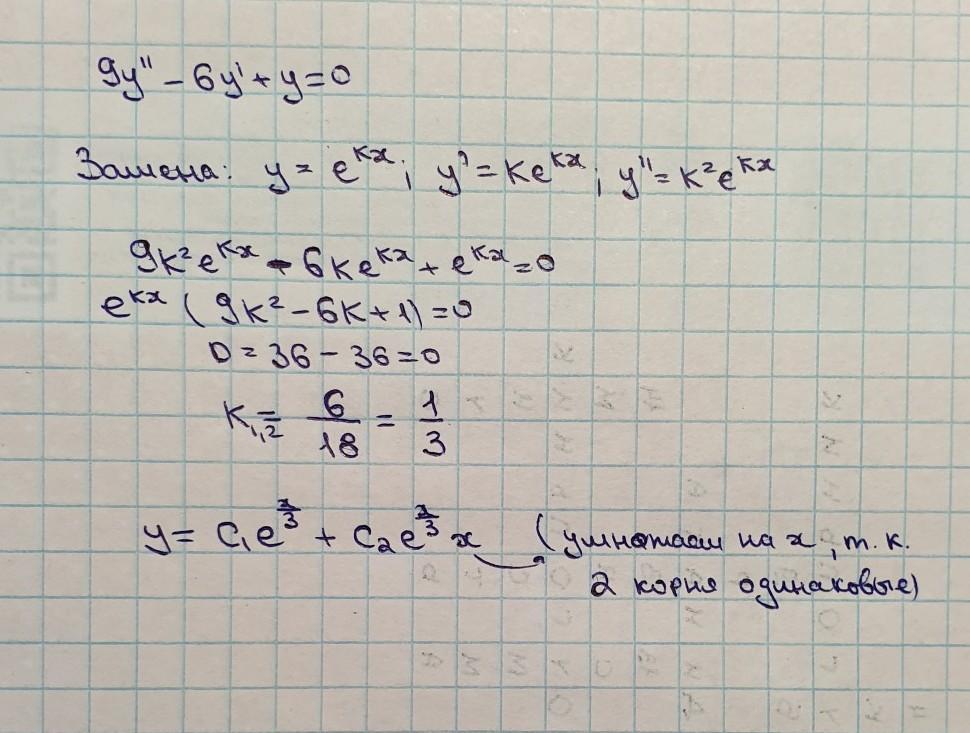 9y'' - 6y' + y = 0
Замена: y = e^{kx}; y' = ke^{kx}; y'' = k²e^{kx}
9k²e^{kx} - 6ke^{kx} + e^{kx} = 0
e^{kx} (9k² - 6k + 1) = 0
D = 36 - 36 = 0
K_{1,2} = 6/18 = 1/3
y = C₁e^{x/3} + C₂e^{x/3} x (умножаем на x, т.к.
2 корня одинаковые)